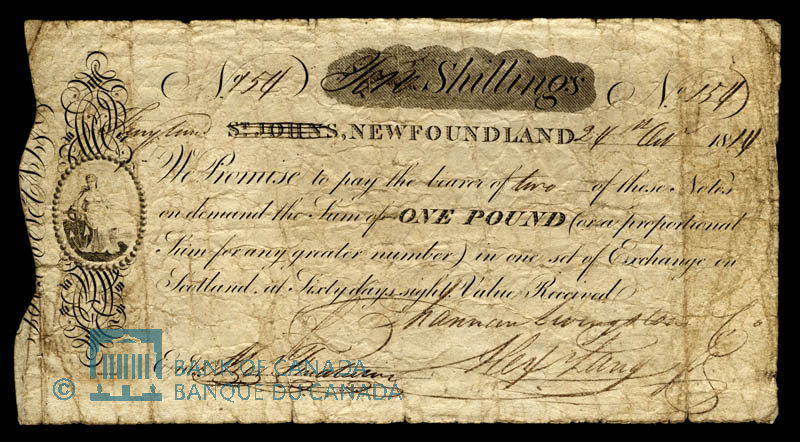 No. 154 Shillings No. 154
ST. JOHNS, NEWFOUNDLAND 24 Octr. 1814
We Promise to pay the bearer of two of these Notes
on demand the Sum of ONE POUND (or a proportional
Sum for any greater number) in one set of Exchange on
Scotland, at Sixty days sight, Value Received
Shannan Livingston & Co.
Entd.
© BANK OF CANADA
BANQUE DU CANADA